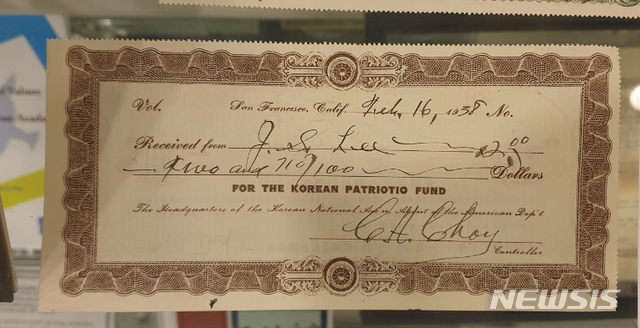 Vol. San Francisco, Calif. Feb. 16, 1938 No.
Received from J. S. Lee $2.00
Two and no/100 Dollars
FOR THE KOREAN PATRIOTIO FUND
The Headquarters of the Korean National Ass'n, of the American Dep't
C. H. Choy
Controller
Values
Acade
NEWSIS